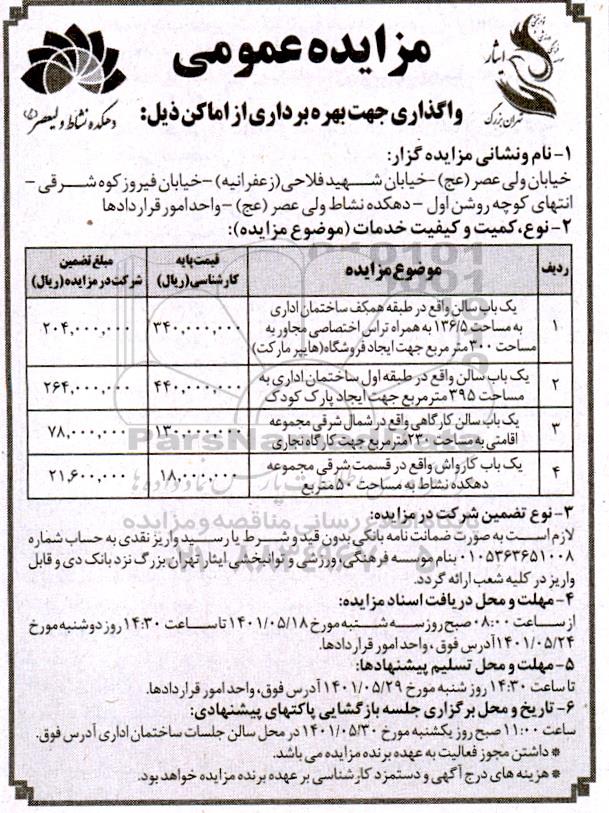 مزایده عمومی
واگذاری جهت بهره برداری از اماکن ذیل:
ایثار
تهران بزرگ
دهکده نشاط ولیعصر (عج)
۱- نام ونشانی مزایده گزار:
خیابان ولی عصر (عج) -خیابان شــهید فلاحی (زعفرانیه) -خیابان فیروز کوه شــرقی -
انتهای کوچه روشن اول - دهکده نشاط ولی عصر (عج) -واحد امور قراردادها
۲- نوع، کمیت و کیفیت خدمات (موضوع مزایده):
ردیف
موضوع مزایده
قیمت پایه کارشناسی (ریال)
مبلغ تضمین شرکت در مزایده (ریال)
۱
یک باب سالن واقع در طبقه همکف ساختمان اداری
به مساحت ۱۳۶/۵ به همراه تراس اختصاصی مجاور به
مساحت ۳۰۰ متر مربع جهت ایجاد فروشگاه (هایپر مارکت)
۳۴۰,۰۰۰,۰۰۰
۲۰۴,۰۰۰,۰۰۰
۲
یک باب سالن واقع در طبقه اول ساختمان اداری به
مساحت ۳۹۵ متر مربع جهت ایجاد پارک کودک
۴۴۰,۰۰۰,۰۰۰
۲۶۴,۰۰۰,۰۰۰
۳
یک باب سالن کارگاهی واقع در شمال شرقی مجموعه
اقامتی به مساحت ۲۳۰ متر مربع جهت کارگاه نجاری
۱۳۰,۰۰۰,۰۰۰
۷۸,۰۰۰,۰۰۰
۴
یک باب کارواش واقع در قسمت شرقی مجموعه
دهکده نشاط به مساحت ۵۰ متر بع
۲۱,۶۰۰,۰۰۰
ParsNamadData
پایگاه اطلاع رسانی مناقصه و مزایده
۳- نوع تضمین شرکت در مزایده:
لازم اســت به صورت ضمانت نامه بانکی بدون قید و شــرط یا رسـید واریز نقدی به حساب شماره
۰۱۰۵۳۶۳۶۵۱۰۰۸ بنام موسسه فرهنگی ورزشی و توانبخشی ایثار تهران بزرگ نزد بانک دی و قابل
واریز در کلیه شعب ارائه گردد.
۴- مهلت و محل دریافت اسناد مزایده:
از ســاعت ۰۸:۰۰ صبح روز سـه شــنبه مورخ ۱۴۰۱/۰۵/۱۸ تا ســاعت ۱۴:۳۰ روز دوشنبه مورخ
۱۴۰۱/۰۵/۲۴ آدرس فوق، واحد امور قراردادها.
۵- مهلت و محل تسلیم پیشنهادها:
تا ساعت ۱۴:۳۰ روز شنبه مورخ ۱۴۰۱/۰۵/۲۹ آدرس فوق، واحد امور قراردادها.
۶- تاریخ و محل برگزاری جلسه بازگشایی پاکتهای پیشنهادی:
ساعت ۱۱:۰۰ صبح روز یکشنبه مورخ ۱۴۰۱/۰۵/۳۰ در محل سالن جلسات ساختمان اداری آدرس فوق.
* داشتن مجوز فعالیت به عهده برنده مزایده می باشد.
* هزینه های درج آگهی و دستمزد کارشناسی بر عهده برنده مزایده خواهد بود.